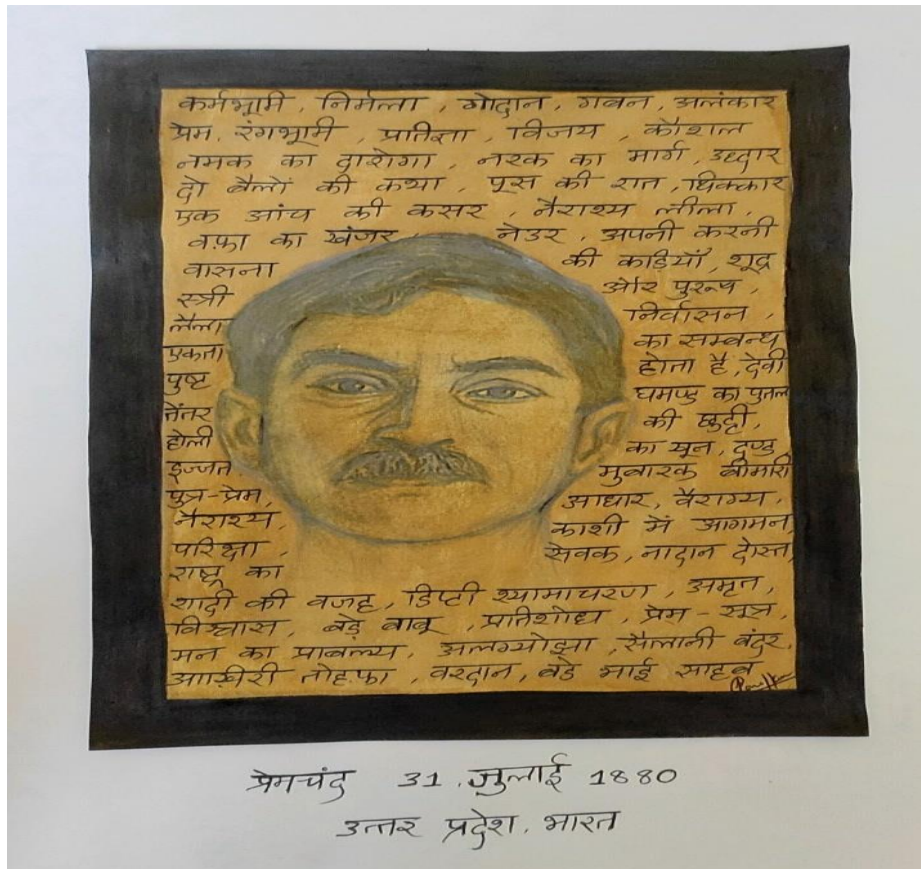 कर्मभूमी, निर्मला, गोदान, गवन, अलंकार
प्रेम, रंगभूमी, प्रतिज्ञा, विजय, कौशल
नमक का दारोगा, नरक का मार्ग, उध्दार
दो बैलों की कथा, पूस की रात, धिक्कार
एक आंच की कसर, नैराश्य लीला,
वफ़ा का खंजर, नेउर, अपनी करनी
वासना की कड़ियाँ, शूद्र
स्त्री और पुरुष,
लैला निर्वासन,
एकता का सम्बन्ध
पुष्ट होता है, देवी
घमण्ड का पुतला
तेंतर की छुट्टी,
होली का खून, दण्ड
इज्जत मुबारक बीमारी
पुत्र-प्रेम, आधार, वैराग्य,
नैराश्य, काशी में आगमन,
परिक्षा, सेवक, नादान दोस्त,
राष्ट्र का
शादी की वजह, डिप्टी श्यामाचरण, अमृत,
विश्वास, बड़े बाबू, प्रतिशोध, प्रेम-सूत्र,
मन का प्राबल्य, अलग्योझा, सैलानी बंदर,
आख़िरी तोहफ़ा, वरदान, बडे भाई साहब
प्रेमचंद 31, जुलाई 1880
उत्तर प्रदेश, भारत